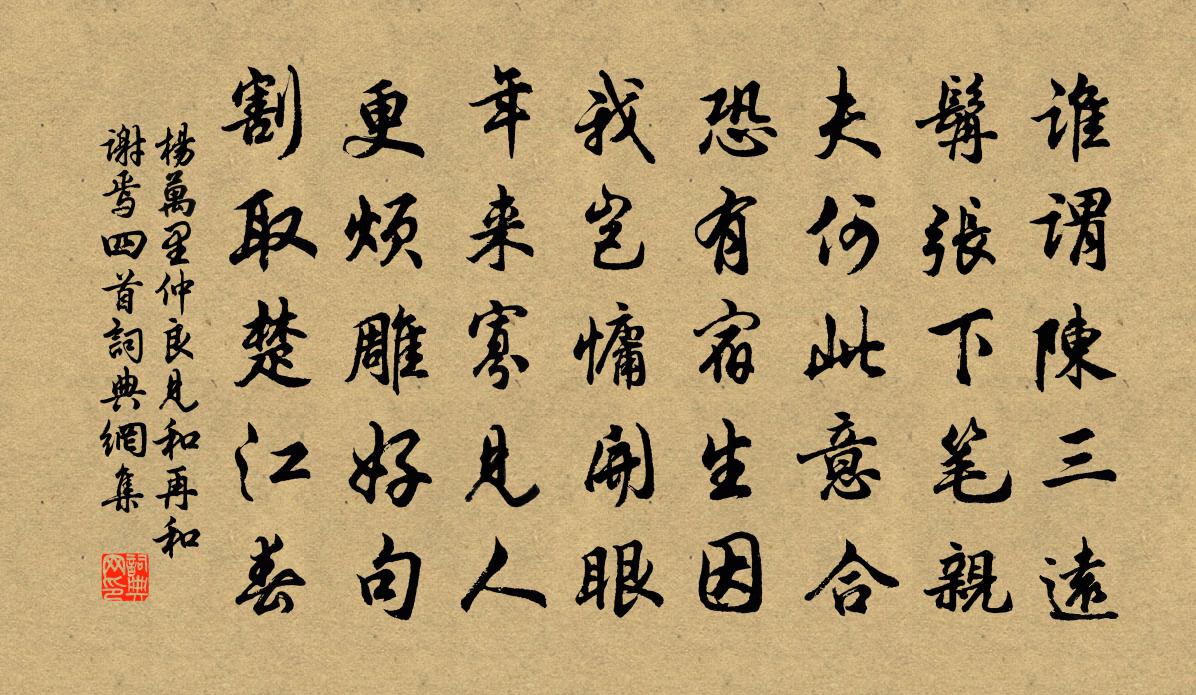 谁谓陳三遠
髯張下笔親
夫何此意合
恐有宿生因
我豈慵開眼
年来寡見人
更烦雕好句
割取楚江春
楊萬里仲良見和再和
谢焉四首詞典網集
詞典
网印